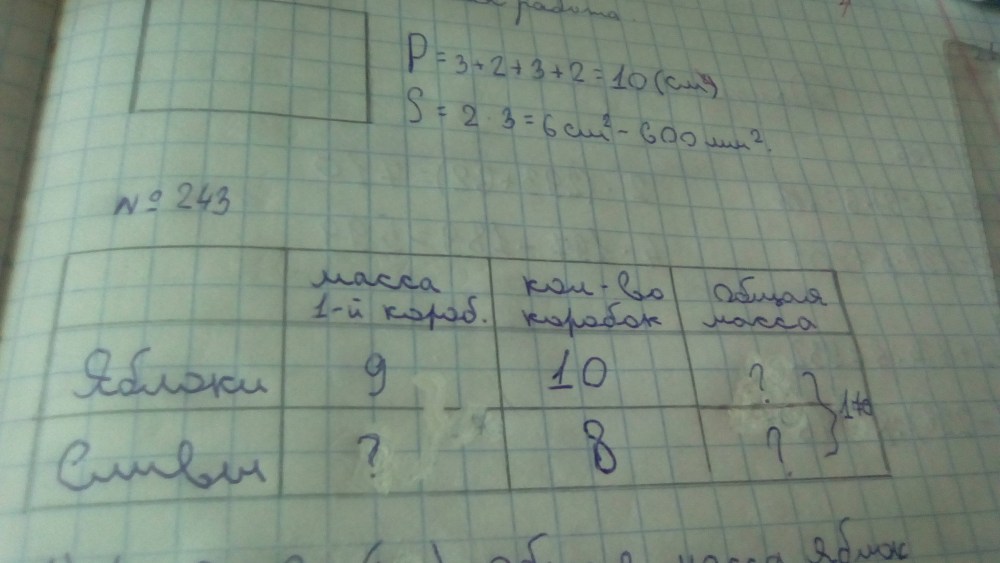 работа.
P = 3 + 2 + 3 + 2 = 10 (см)
S = 2 · 3 = 6 см² - 600 мм².
№ 243
масса 1-й короб.
кол-во коробок
общая масса
Яблоки 9 10 ?
Сливы ? 8 ?
масса яблок